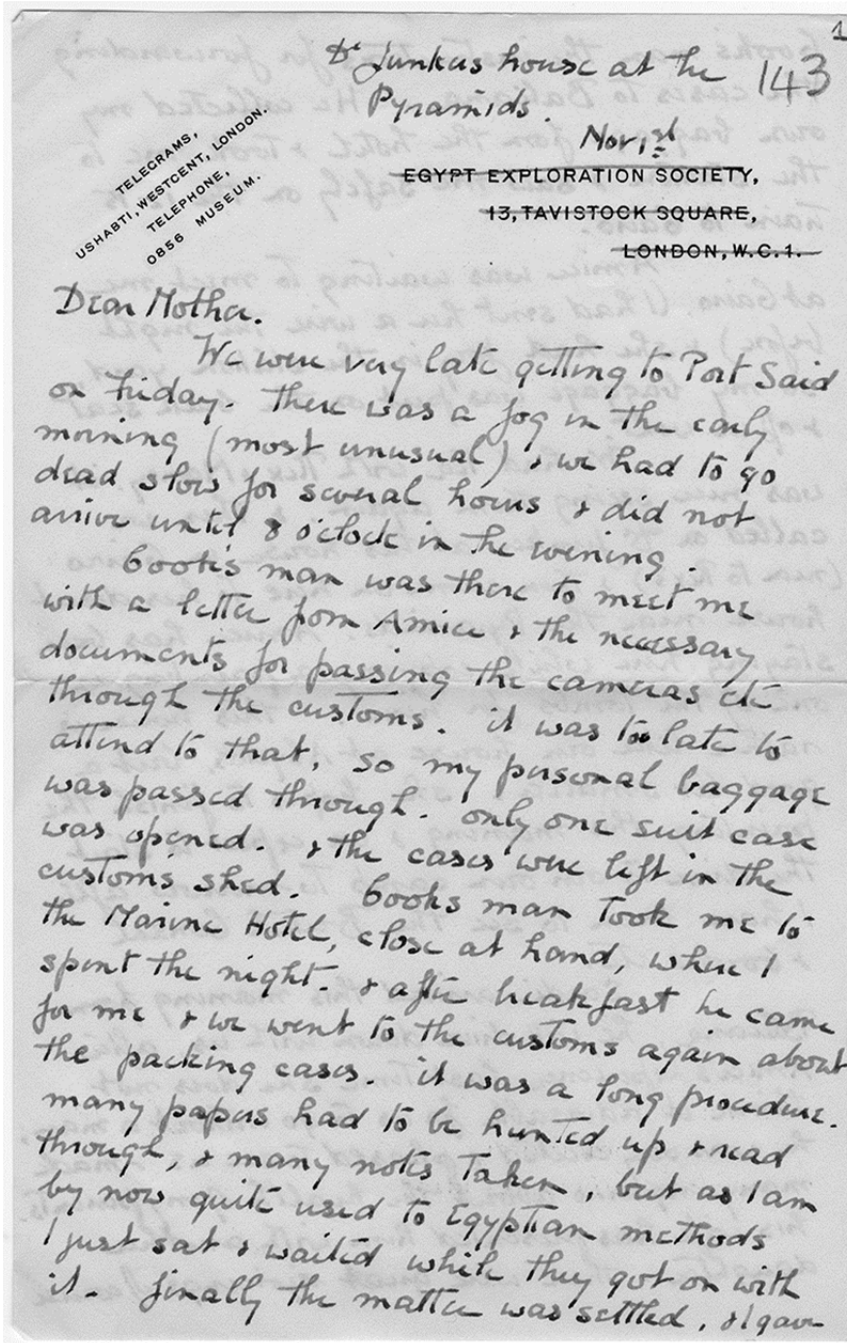 1
143
Dr Junkers house at the
Pyramids.
Nov 1st
TELEGRAMS,
USHABTI, WESTCENT, LONDON.
TELEPHONE,
0856 MUSEUM.
EGYPT EXPLORATION SOCIETY,
13, TAVISTOCK SQUARE,
LONDON, W.C.1.
Dear Mother.
We were very late getting to Port Said
on Friday. There was a fog in the early
morning (most unusual) & we had to go
dead slow for several hours & did not
arrive until 8 o'clock in the evening.
Cook's man was there to meet me
with a letter from Amice & the necessary
documents for passing the cameras etc
through the customs. it was too late to
attend to that, so my personal baggage
was passed through. only one suit case
was opened. & the cases were left in the
customs shed. Cooks man took me to
the Marine Hotel, close at hand, where I
spent the night. & after breakfast he came
for me & we went to the customs again about
the packing cases. it was a long procedure.
many papers had to be hunted up & read
through, & many notes taken, but as I am
by now quite used to Egyptian methods
I just sat & waited while they got on with
it. finally the matter was settled, & I gave